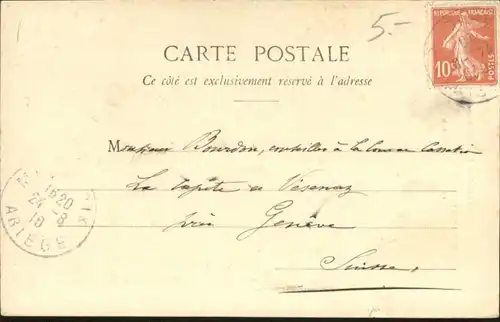 5.-
REPUBLIQUE FRANÇAISE
10c
POSTES
CARTE POSTALE
Ce côté est exclusivement réservé à l'adresse
Monsieur Bourdon, conseiller à la Cour de Cassation
La Capite de Vésenaz
près Genève
Suisse.
15 20
24 -8
10
ARIEGE